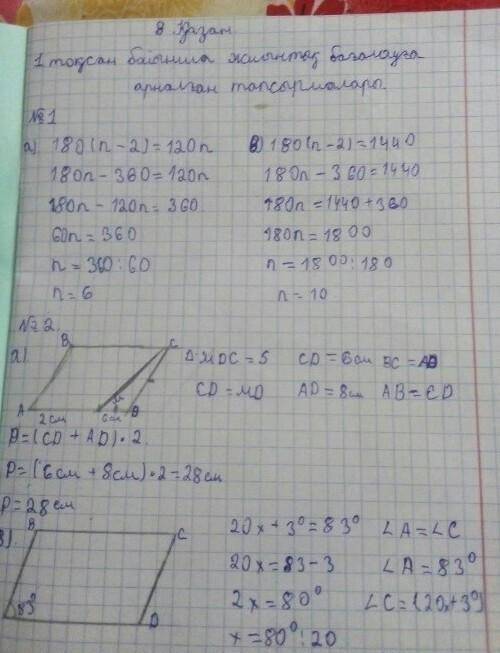 8 Қазан
1 тоқсан бойынша жиынтық бағалауға
арналған тапсырмалары.
№1
а). 180(n-2)=120n
180n-360=120n
180n-120n=360
60n=360
n=360:60
n=6
в) 180(n-2)=1440
180n-360=1440
180n=1440+360
180n=1800
n=1800:180
n=10
№2.
а).
B C
A 2см M 6см D
ΔMDC=5 CD=6см BC=AD
CD=MD AD=8см AB=CD
P=(CD+AD)·2.
P=(6см+8см)·2=28см
P=28см
в).
B C
83° D
20x+3°=83° ∠A=∠C
20x=83-3 ∠A=83°
2x=80° ∠C=(20x+3°)
x=80°:20